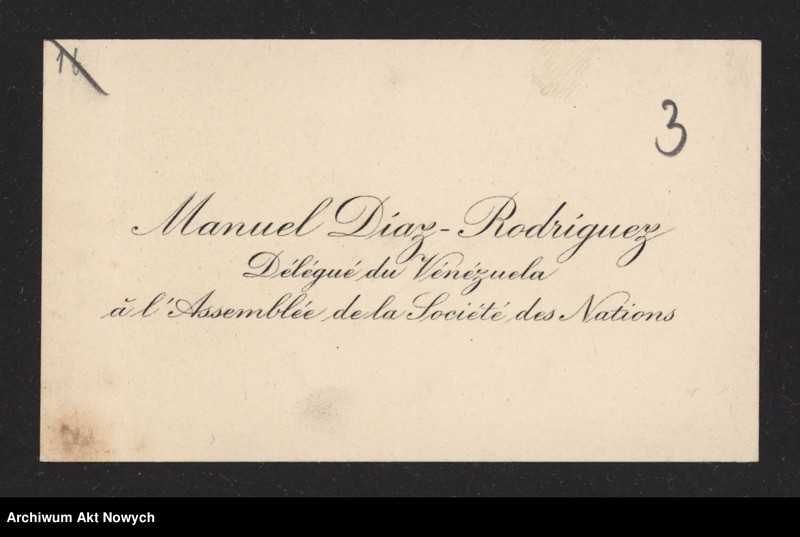 16
3
Manuel Díaz-Rodríguez
Délégué du Vénézuela
à l'Assemblée de la Société des Nations
Archiwum Akt Nowych